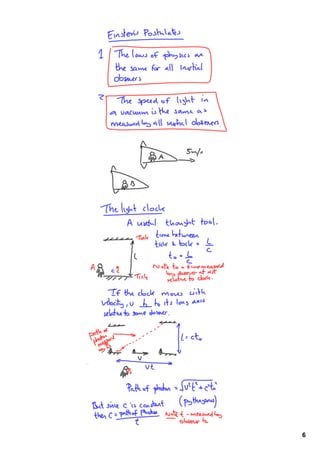 Einsteins Postulates
1 The laws of physics are
the same for all inertial
observers
2 The speed of light in
a vacuum is the same as
measured by all inertial observers
A
5m/s
B
The light clock
A useful thought tool.
Tock
time between
tick & tock = L
C
L
t₀ = L
C
A
Note t₀ = time measured
by observer at rest
relative to clock.
Tick
If the clock moves with
velocity, v to its long axis
relative to some observer.
path of
photon
L = ct₀
v
vt
B
Path of photon = √v²t² + c²t₀²
(pythagoras)
But since c is constant
then c = path of photon
t
Note t - measured by
observer
6